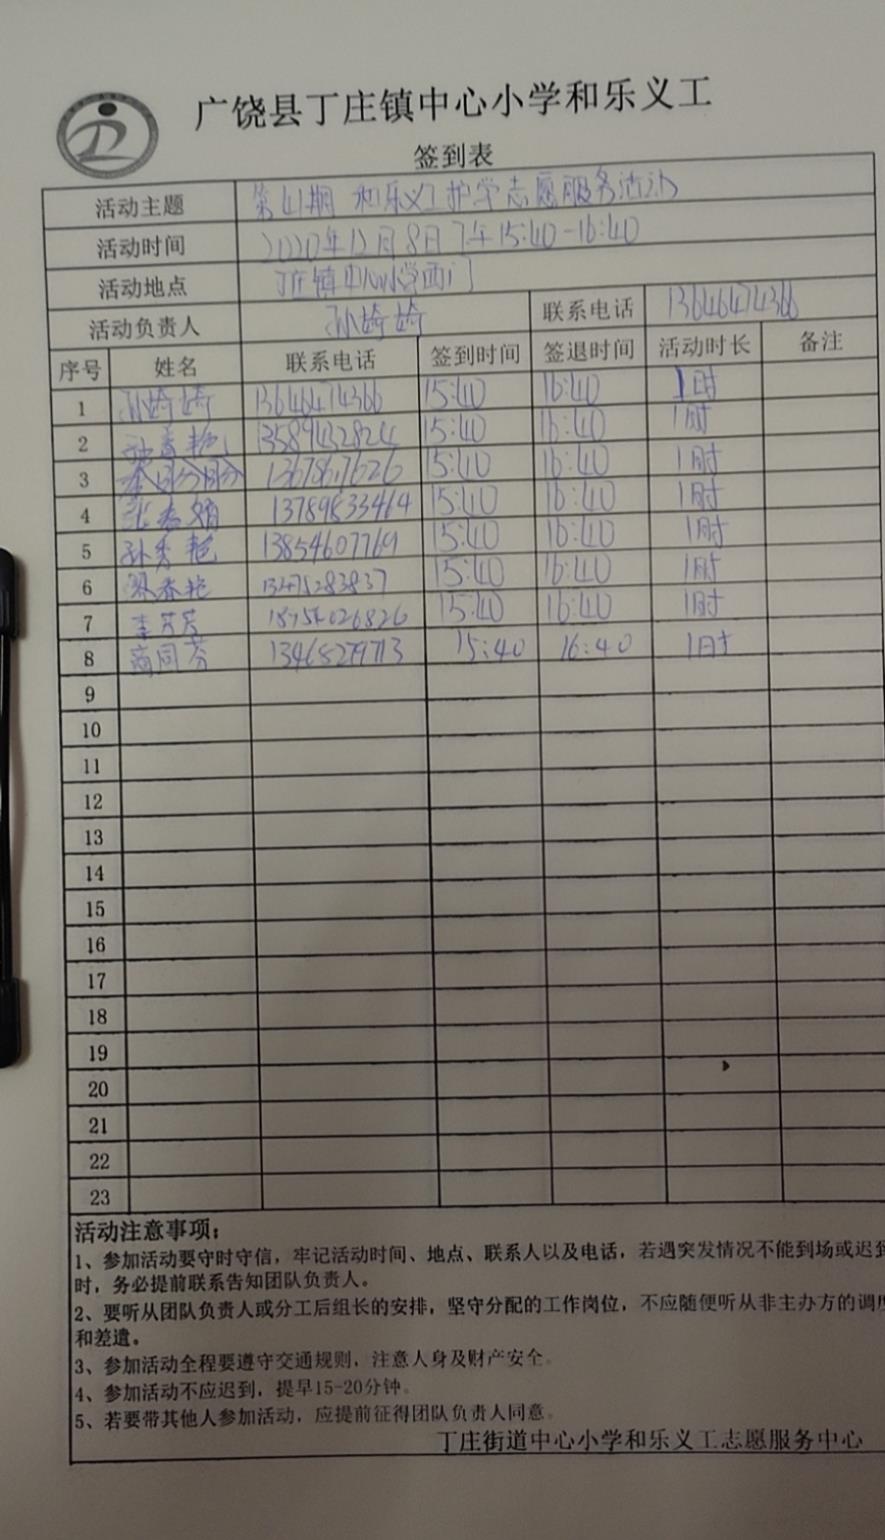 广饶县丁庄镇中心小学和乐义工
签到表
活动主题 第41期 和乐义工护学志愿服务活动
活动时间 2020年12月8日下午15:40-16:40
活动地点 丁庄镇中心小学西门
活动负责人 孙婷婷 联系电话 13646474366
序号 姓名 联系电话 签到时间 签退时间 活动时长 备注
1 孙婷婷 13646474366 15:40 16:40 1时
2 13589432824 15:40 16:40 1时
3 15:40 16:40 1时
4 张春娟 13789833464 15:40 16:40 1时
5 孙秀艳 13854607769 15:40 16:40 1时
6 13475283837 15:40 16:40 1时
7 李芹芹 15:40 16:40 1时
8 商同芬 13468279713 15:40 16:40 1时
9
10
11
12
13
14
15
16
17
18
19
20
21
22
23
活动注意事项:
1、参加活动要守时守信,牢记活动时间、地点、联系人以及电话,若遇突发情况不能到场或迟到
时,务必提前联系告知团队负责人。
2、要听从团队负责人或分工后组长的安排,坚守分配的工作岗位,不应随便听从非主办方的调度
和差遣。
3、参加活动全程要遵守交通规则,注意人身及财产安全。
4、参加活动不应迟到,提早15-20分钟。
5、若要带其他人参加活动,应提前征得团队负责人同意。
丁庄街道中心小学和乐义工志愿服务中心